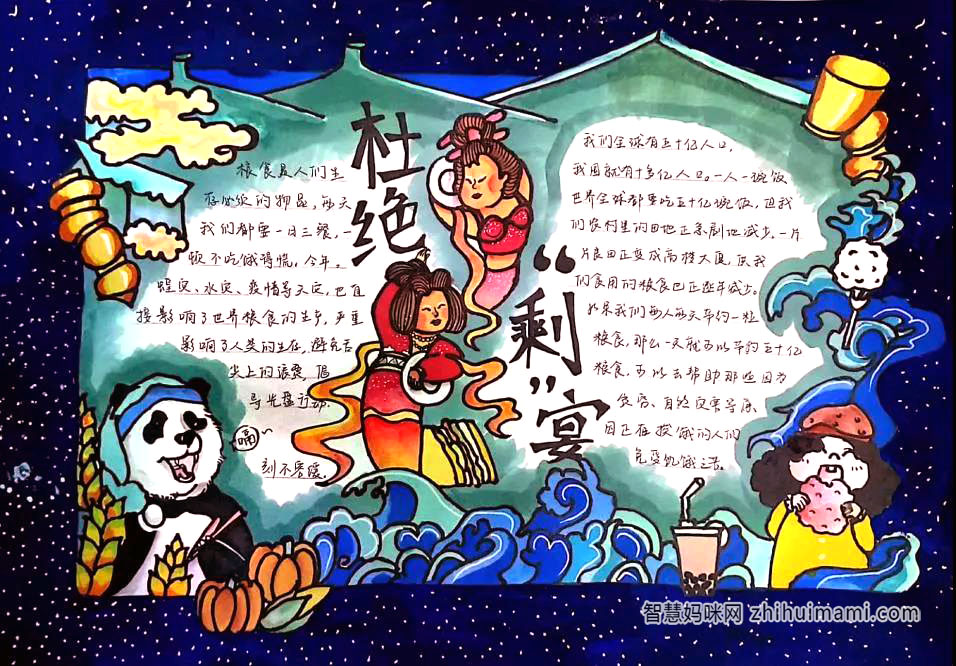 杜绝
“剩”宴
粮食是人们生
存必须的物品，每天
我们都要一日三餐，一
顿不吃饿得慌，今年。
蝗灾、水灾、疫情等天灾，已直
接影响了世界粮食的生产，严重
影响了人类的生存，避免舌
尖上的浪费，倡
导光盘行动.
刻不容缓。
嗝
我们全球有五十亿人口，
我国就有十多亿人口。一人一碗饭
世界全球都要吃五十亿碗饭，但我
们农村里的田地正急剧地减少。一片
片良田正变成高楼大厦，供我
们食用的粮食也正逐年减少。
如果我们每人每天节约一粒
粮食，那么一天就可以节约五十亿
粮食，可以去帮助那些因为
贫穷、自然灾害等原
因正在挨饿的人们
免受饥饿之苦。
智慧妈咪网 zhihuimami.com